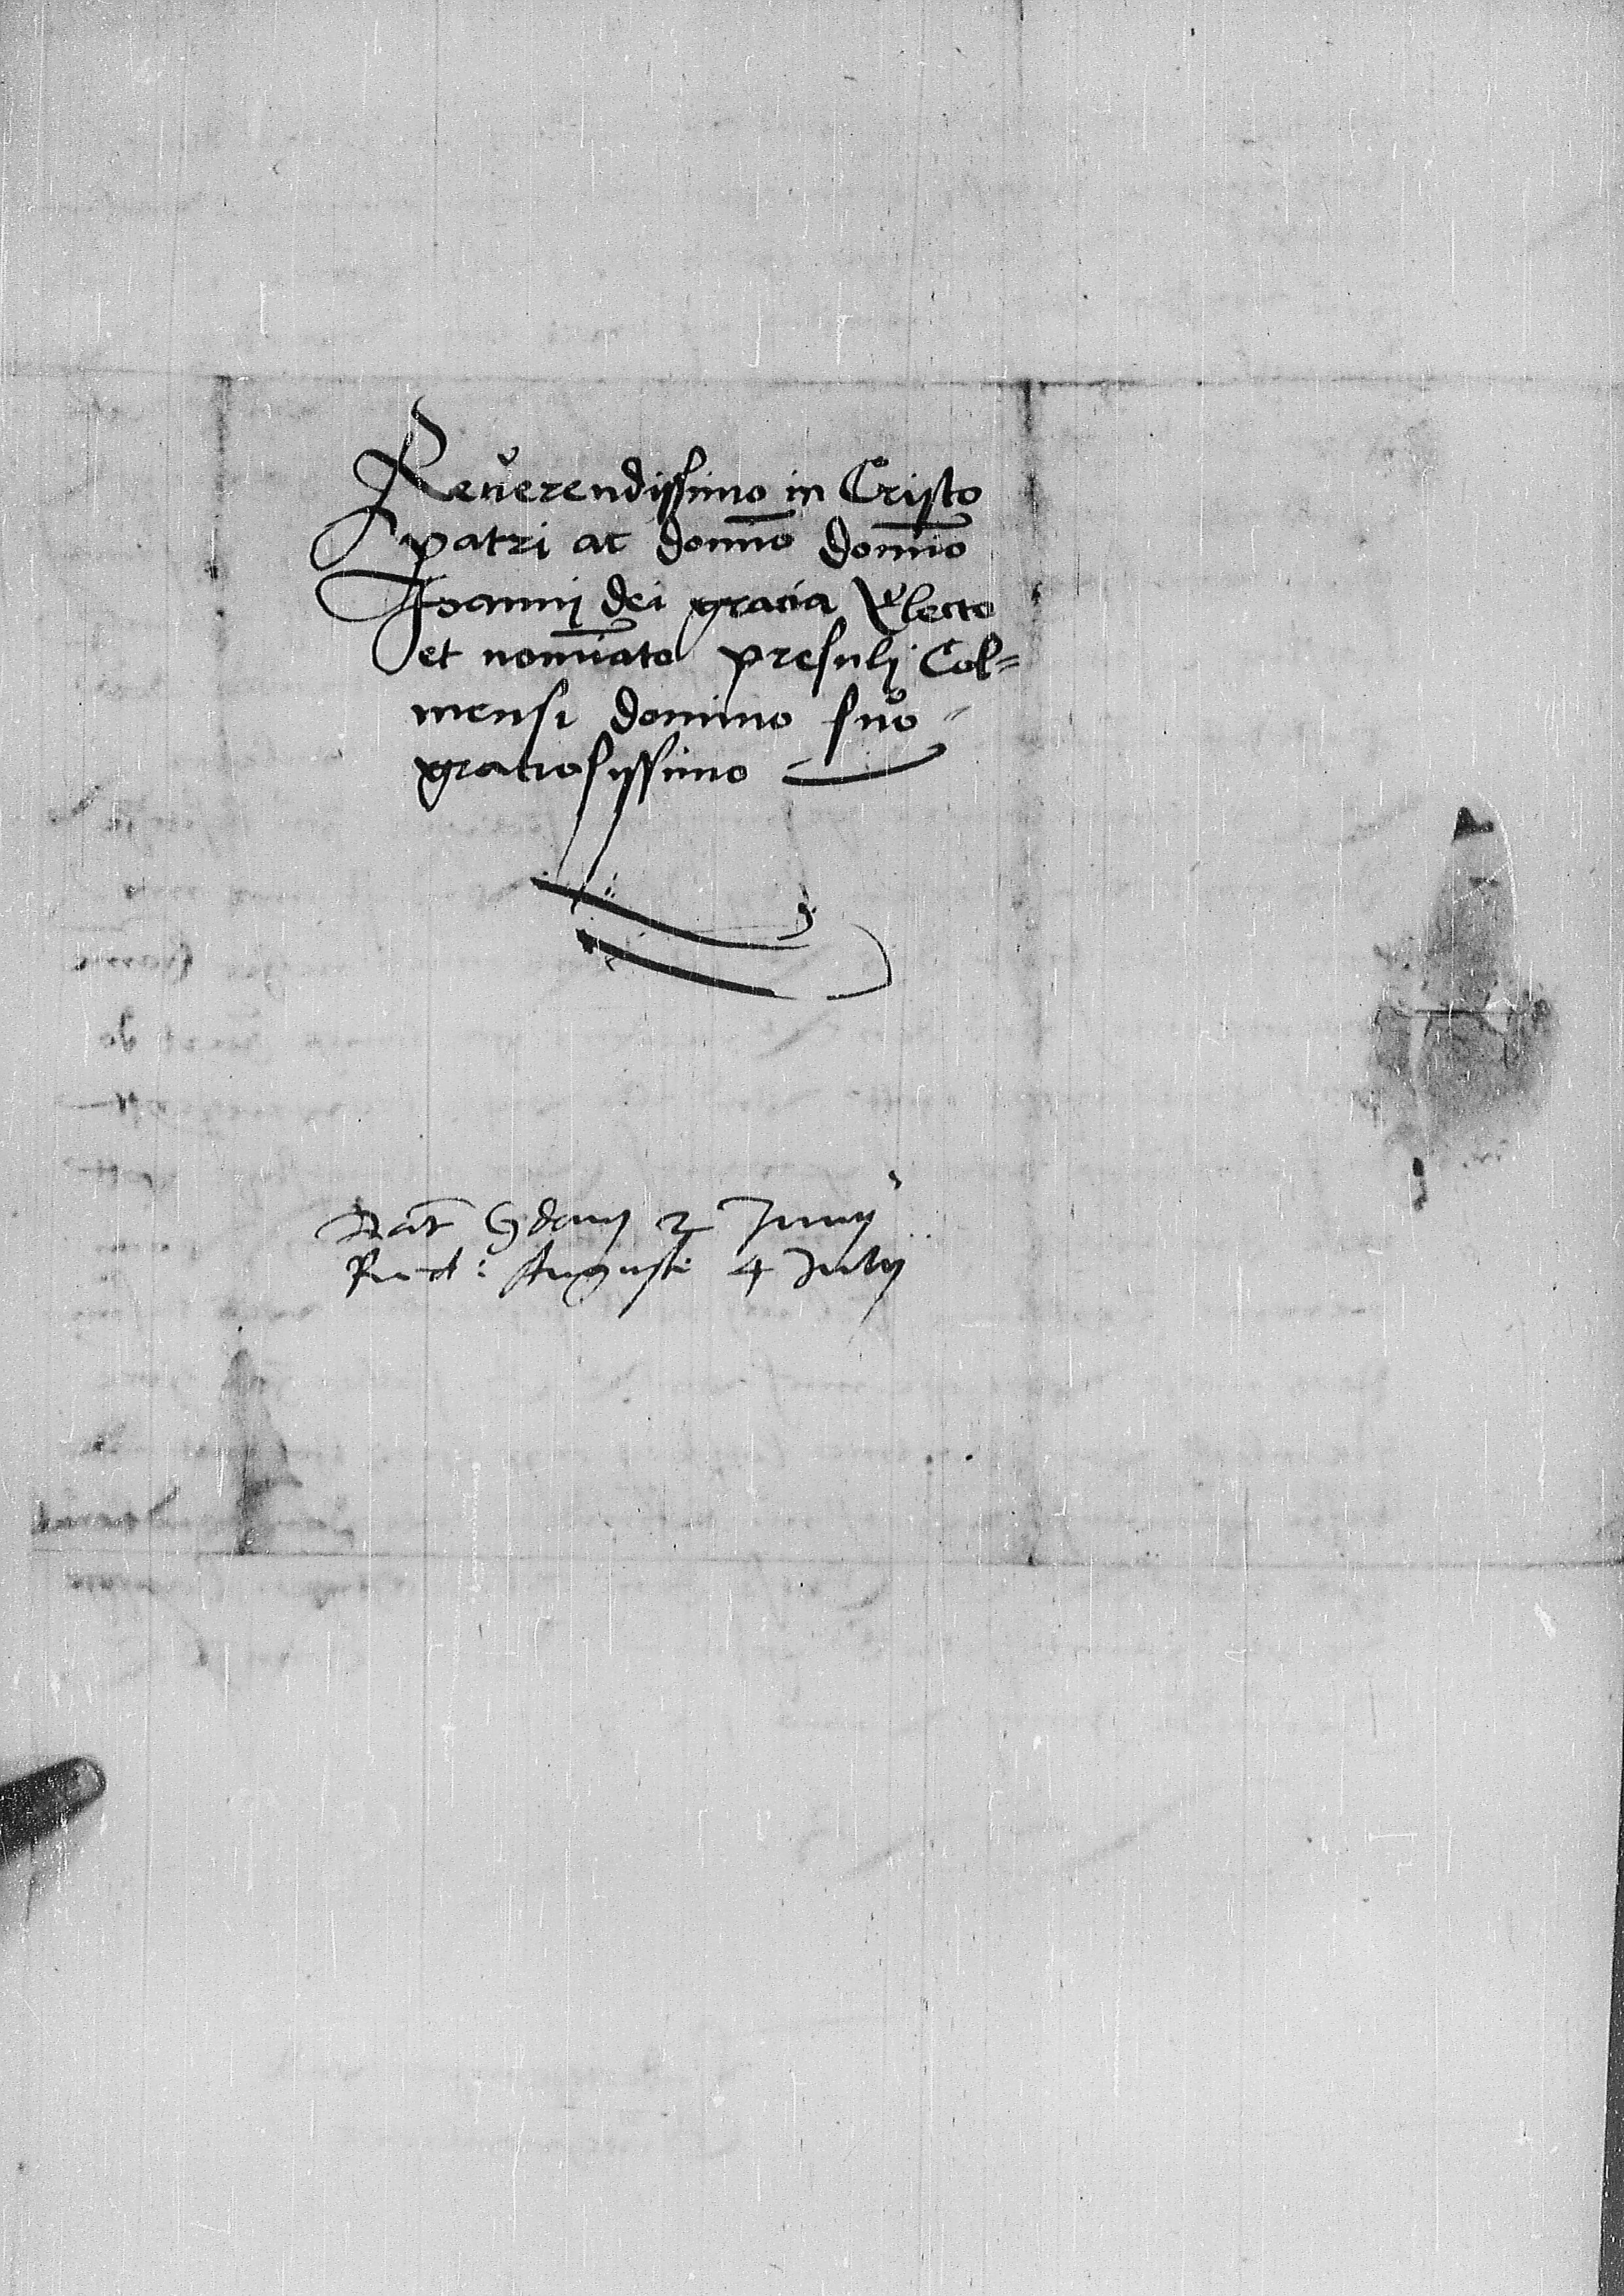 Reuerendissimo in Cristo
patri ac domino domino
Joanni dei gracia Electo
et nominato presuli Col=
mensi domino suo
gratiosissimo
Dat Gdani 2 Junij
Auguste 4 Julij